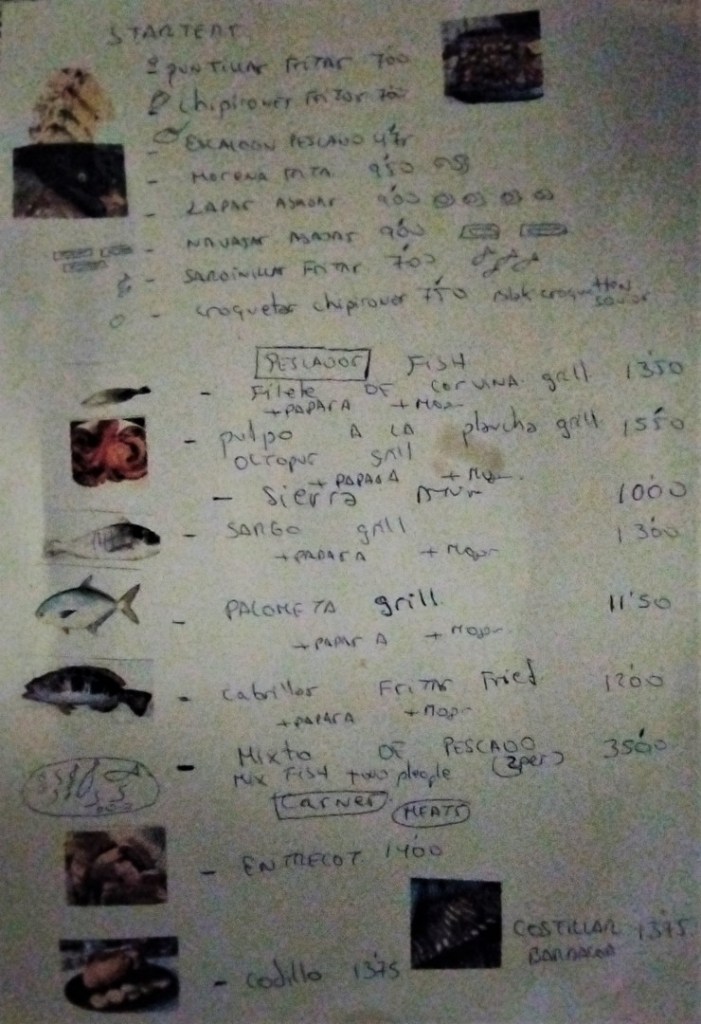 STARTERS
PUNTILLAS FRITAS 7'00
Chipirones FRITOS 7'00
- ESCALDON PESCADO 4'75
- MORENA FRITA 9'50
- LAPAS ASADAS 9'00
- NAVAJAS ASADAS 9'00
- SARDINILLAS FRITAS 7'00
- croquetas chipirones 7'50
PESCADOS FISH
- Filete DE CORVINA grill 13'50
+ PAPARA + Mojo
- pulpo A LA plancha grill 15'50
OCTOPUS grill
+ PAPARA + Mojo
- Sierra 10'00
- SARGO grill 13'00
+ PAPARA + Mojo
- PALOMETA grill 11'50
+ PAPARA + Mojo
- Cabrillas FRITAS Fried 12'00
+ PAPARA + Mojo
- Mixto DE PESCADO 35'00
Mix FISH two people (2per)
Carnes MEATS
- ENTRECOT 14'00
COSTILLAS 13'75
BARBACOA
- Codillo 13'75